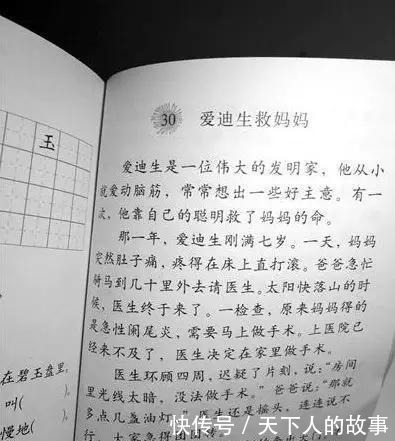 玉
在碧玉盘里,
叫(
慢地(
30 爱迪生救妈妈
爱迪生是一位伟大的发明家,他从小
就爱动脑筋,常常想出一些好主意。有一
次,他靠自己的聪明救了妈妈的命。
那一年,爱迪生刚满七岁。一天,妈妈
突然肚子痛,疼得在床上直打滚。爸爸急忙
骑马到几十里外去请医生。太阳快落山的时
候,医生终于来了。一检查,原来妈妈得的
是急性阑尾炎,需要马上做手术。上医院已
经来不及了,医生决定在家里做手术。
医生环顾四周,迟疑了片刻,说:“房间
里光线太暗,没法做手术。”爸爸说:“那就
多点几盏油灯。”医生还是摇头,连连说不
行。大家急得团团
快传号/天下人的故事